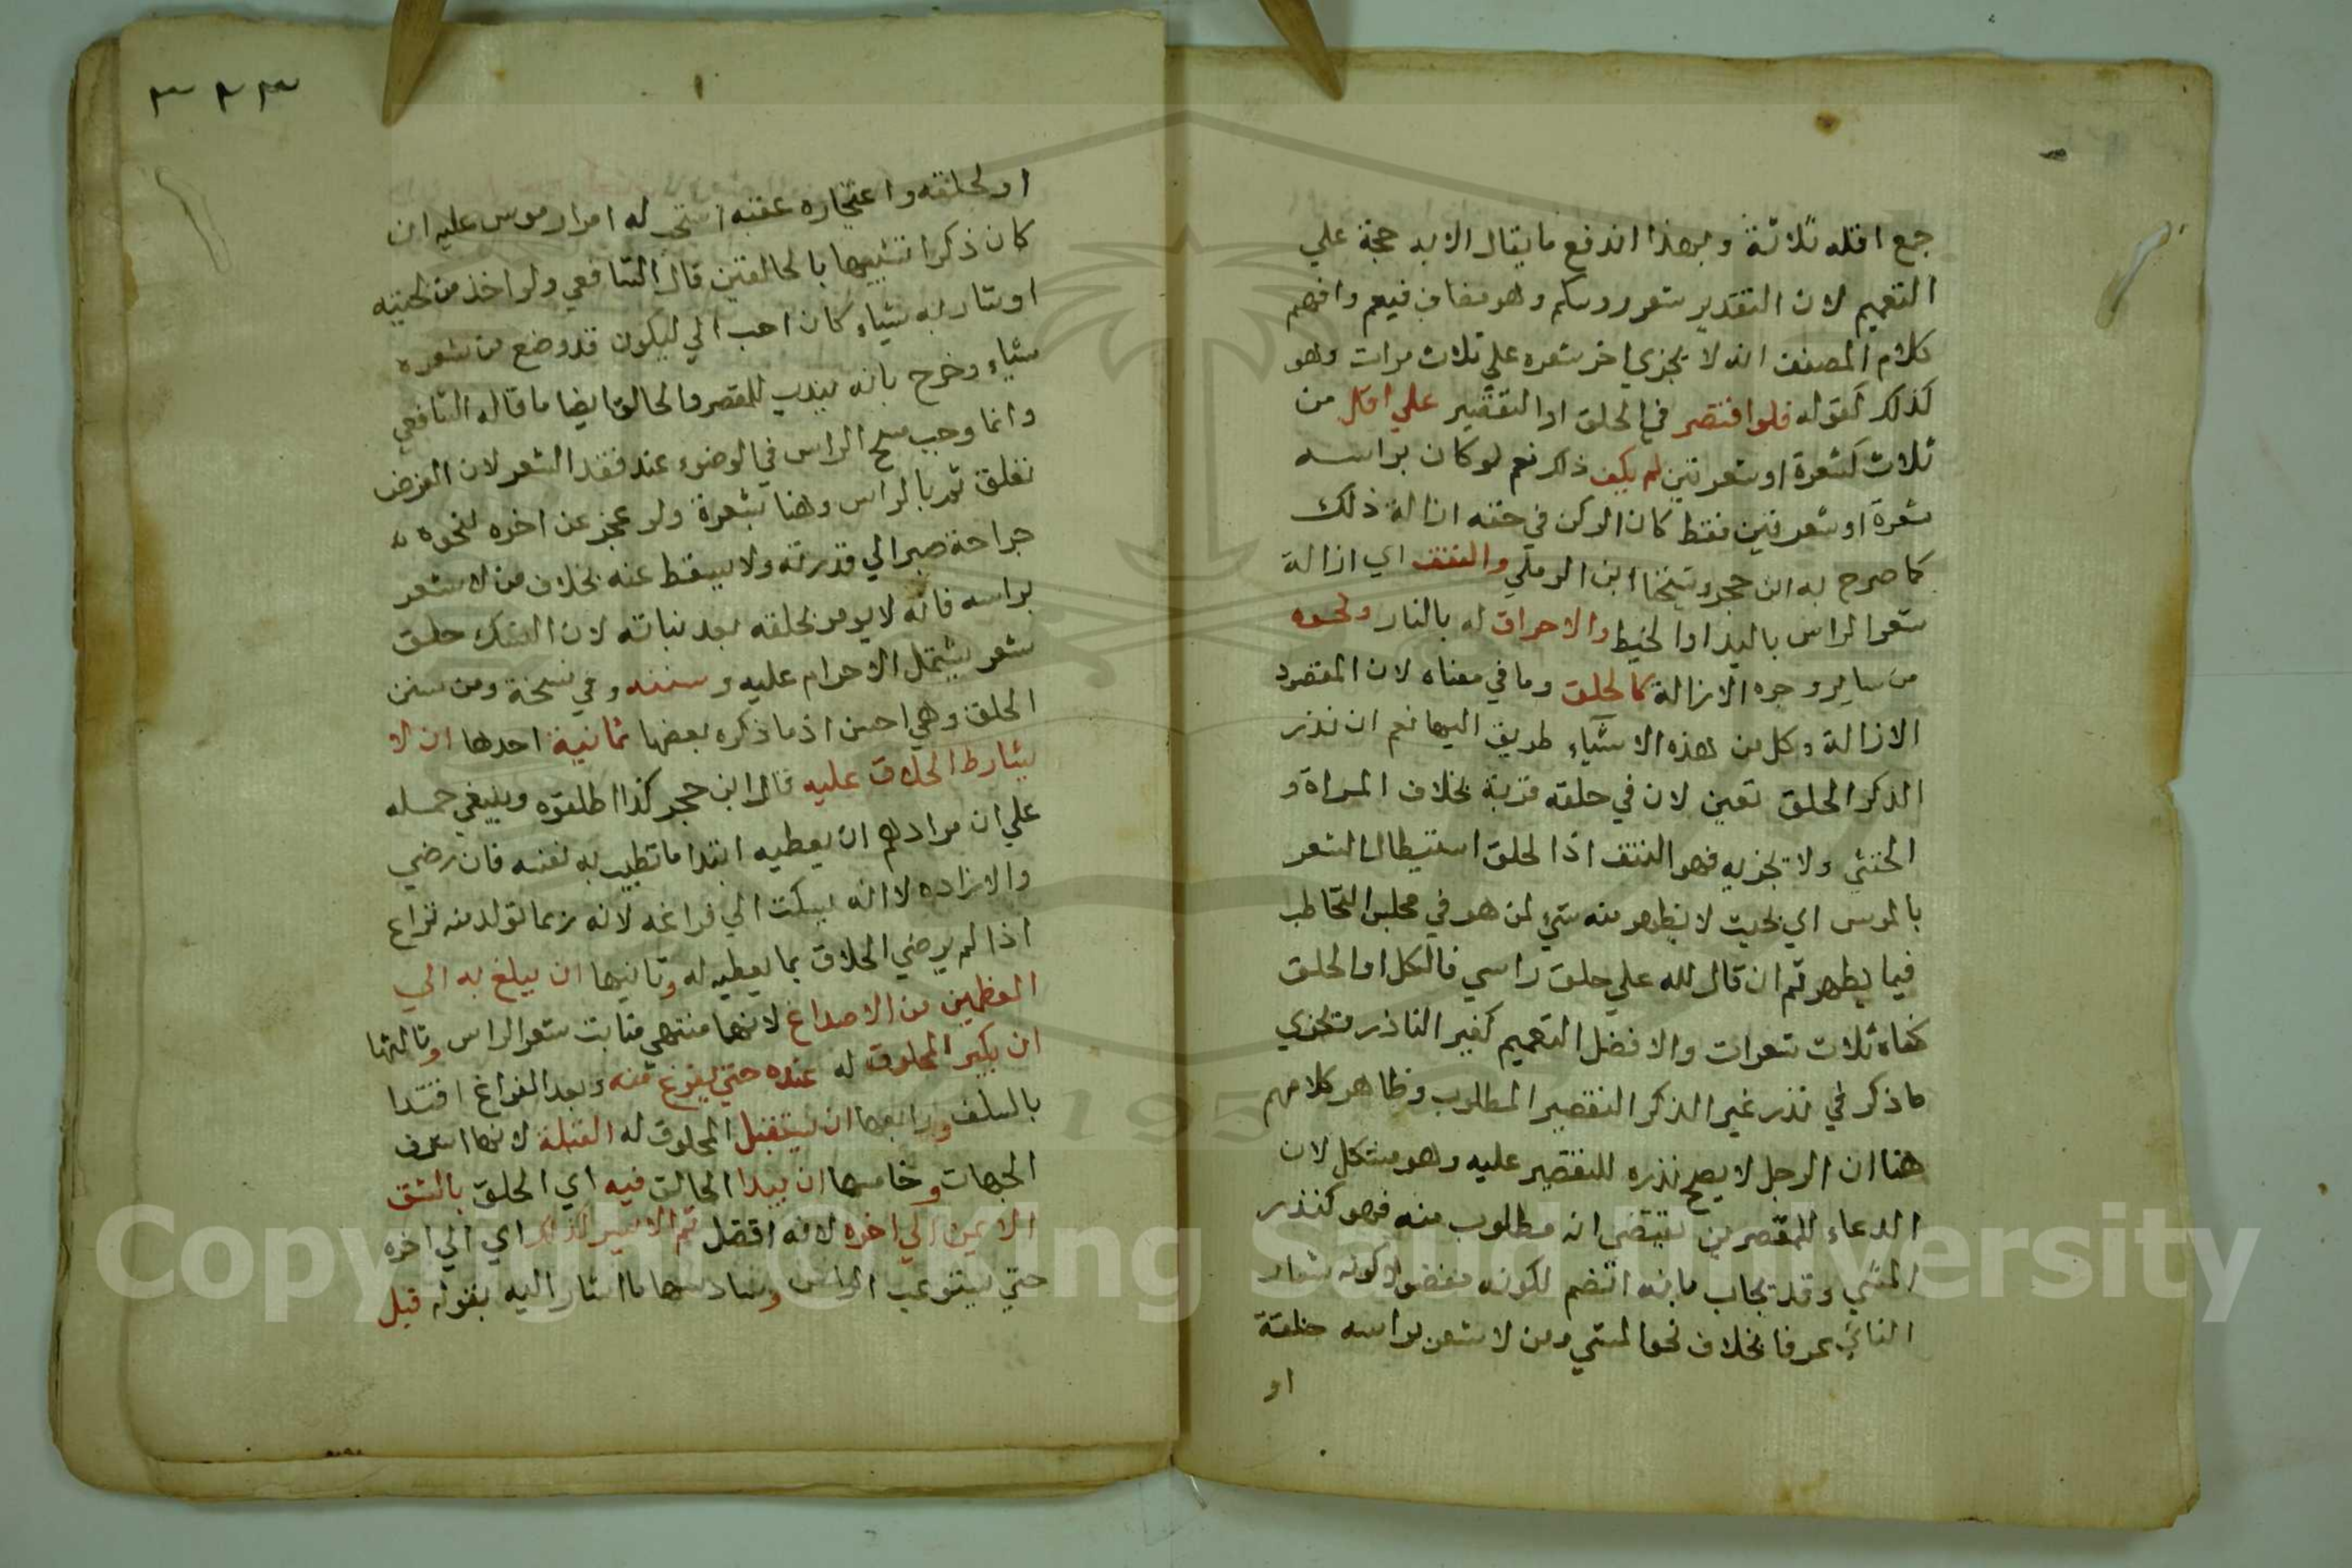 جمع اقله ثلاثة وبهذا اندفع ما يقال الايه حجة علي
التعميم لان التقدير شعر روسكم وهو مضاف فيعم وافهم
كلام المصنف انه لا يجزي اخر شعره علي ثلاث مرات وهو
كذلك كقوله فلوا قتصر في الحلق او التقصير علي اقل من
ثلاث كشعرة او شعرتين لم يكف ذلك نعم لو كان براسه
شعرة او شعرتين فقط كان الركن في حقه ازالة ذلك
كما صرح به ابن حجر وشيخنا ابن الرملي والنتف اي ازالة
شعر الراس باليد او الخيط والاحراق له بالنار ونحوه
من ساير وجوه الازالة كالحلق وما في معناه لان المقصود
الازالة وكل من هذه الاشياء طريق اليها نعم ان نذر
الذكر الحلق تعين لان في حلقه قربة بخلاف المراة و
الخنثي ولا يجزيه فهو النتف اذ الحلق استيصال الشعر
بالموسى اي بحيث لا يظهر منه شيء لمن هو في مجلس التخاطب
فيما يظهر ثم ان قال لله علي حلق راسي فالكل او الحلق
كفاه ثلاث شعرات والافضل التعميم كغير الناذر فتجزي
ما ذكر في نذر غير الذكر التقصير المطلوب وظاهر كلامهم
هنا ان الرجل لا يصح نذره للتقصير عليه وهو مشكل لان
الدعاء للمقصرين يقتضي انه مطلوب منه فهو كنذر
المشي وقد يجاب بانه انضم لكونه مفضولا كونه شعار
الناس عرفا بخلاف نحو المشي ومن لا شعر براسه خلقة
او
٣٢٣
او لحلقه واعتماره عقبه استحب له امرار موسى عليه ان
كان ذكرا تشبيها بالحالقين قال الشافعي ولو اخذ من لحيته
او شاربه شياء كان احب الي ليكون قد وضع من شعره
شياء وخرج بانه يندب للمقصر والحالق ايضا ما قاله الشافعي
وانما وجب مسح الراس في الوضوء عند فقد الشعر لان الفرض
تعلق ثم بالراس وهنا بشعرة ولو عجز عن اخذه لنحوه
جراحة صبر الي قدرته ولا يسقط عنه بخلاف من لا شعر
براسه فانه لا يومر بحلقه بعد نباته لان النسك حلق
شعر يشتمل الاحرام عليه وسننه وفي نسخة ومن سنن
الحلق وهي احسن اذ ما ذكره بعضها ثمانية احدها ان لا
يشارط الحلاق عليه قال ابن حجر كذا اطلقوه وينبغي حمله
علي ان مرادهم ان يعطيه ابتدا ما تطيب به نفسه فان رضي
والا زاده لا انه يسكت الي فراغه لانه ربما تولد منه نزاع
اذا لم يرضي الحلاق بما يعطيه له وثانيها ان يبلغ به الي
العظمين من الاصداغ لانهما منتهي منابت شعر الراس وثالثها
ان يكبر المحلوق له عنده حتي يفرغ منه وبعد الفراغ اقتدا
بالسلف ورابعها ان يستقبل المحلوق له القبلة لانها اشرف
الجهات وخامسها ان يبدا الحالق فيه اي الحلق بالشق
الايمن الي اخره لانه افضل ثم الايسر كذلك اي الي اخره
حتي يستوعب الراس وسادسها ما اشار اليه بقوله قبل
Copyright © King Saud University
195